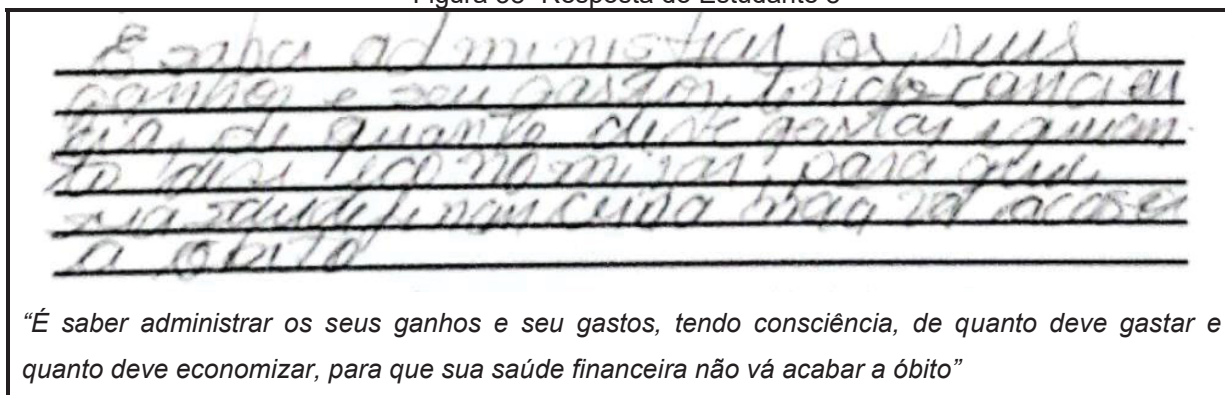 É saber administrar os seus
ganhos e seu gastos, tendo consciên
cia, de quanto deve gastar e quan
to deve economizar, para que
sua saude financeira não vá
a óbito
"É saber administrar os seus ganhos e seu gastos, tendo consciência, de quanto deve gastar e
quanto deve economizar, para que sua saúde financeira não vá acabar a óbito"